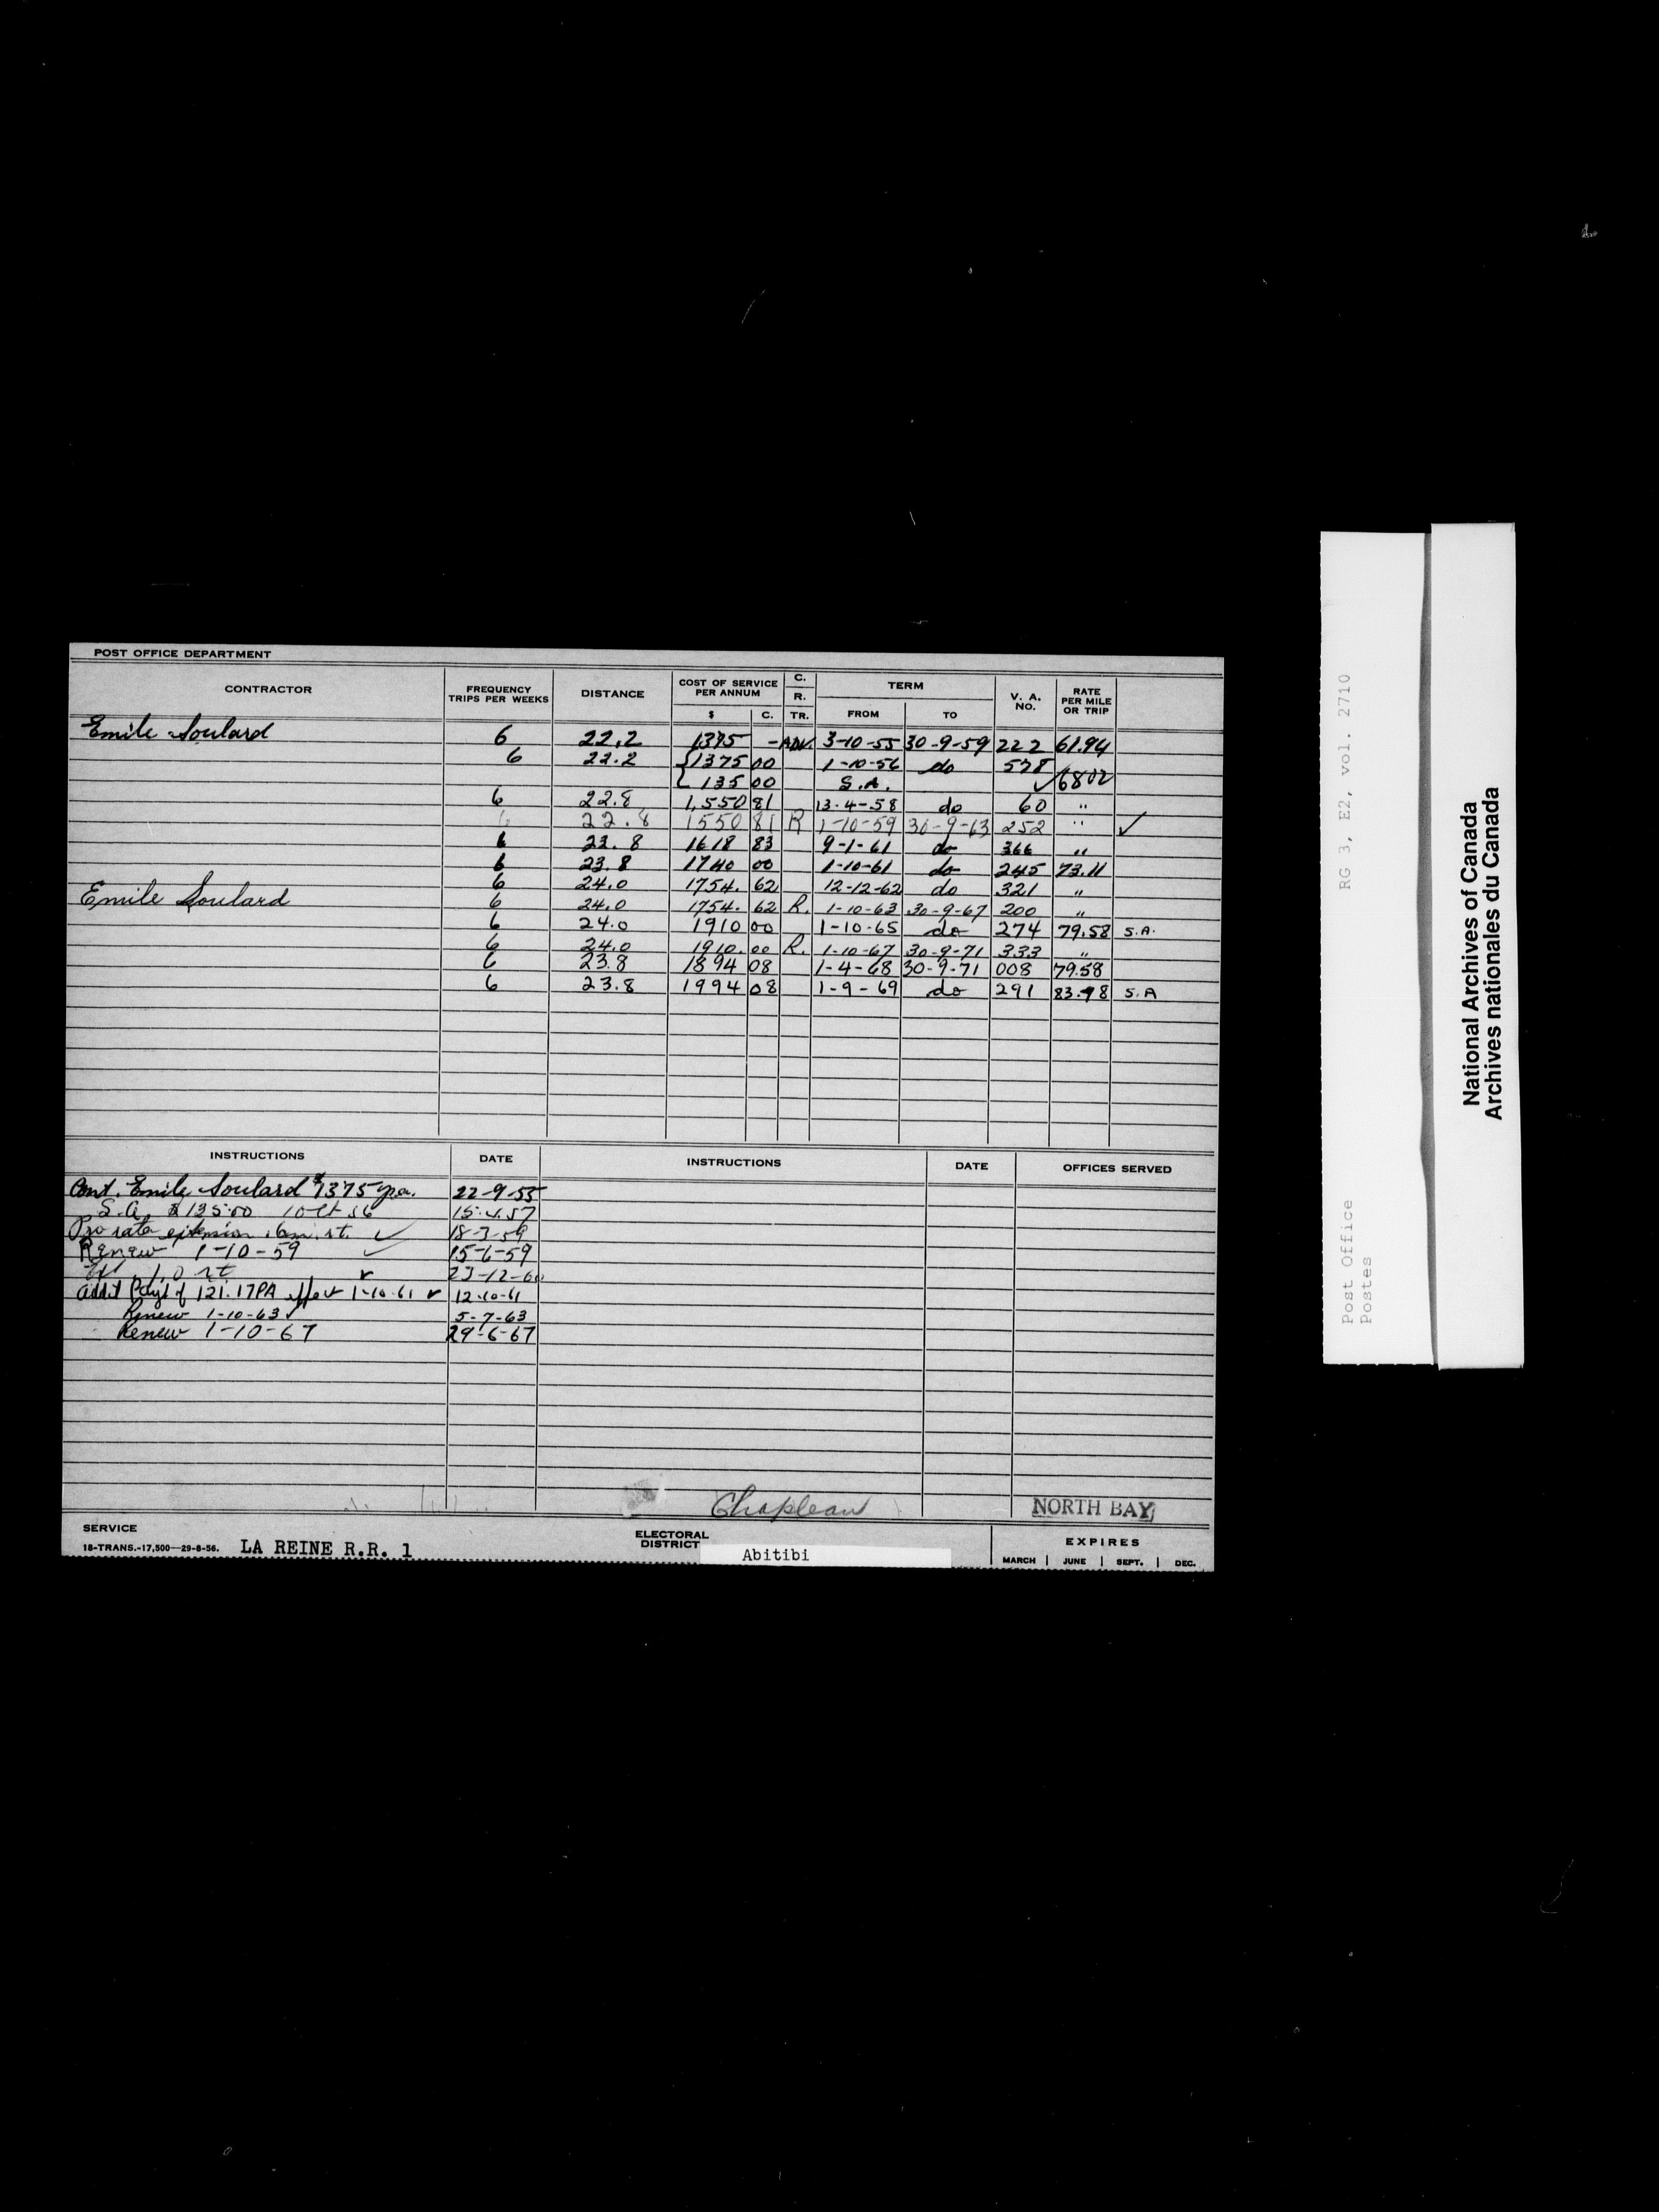 POST OFFICE DEPARTMENT
CONTRACTOR FREQUENCY TRIPS PER WEEKS DISTANCE COST OF SERVICE PER ANNUM $ C. C. R. TR. TERM FROM TO V. A. NO. RATE PER MILE OR TRIP
Emile Soulard 6 22.2 1375 - ADV. 3-10-55 30-9-59 222 61.94
6 22.2 {1375 00 1-10-56 do 578
135 00 S.A. ✓ 6802
6 22.8 1,550 81 13-4-58 do 60 "
6 22.8 1550 81 R 1-10-59 30-9-63 252 " ✓
6 23.8 1618 83 9-1-61 do 366 "
6 23.8 1740 00 1-10-61 do 245 73.11
6 24.0 1754. 62 12-12-62 do 321 "
Emile Soulard 6 24.0 1754. 62 R. 1-10-63 30-9-67 200 "
6 24.0 1910 00 1-10-65 do 274 79.58 S.A.
6 24.0 1910. 00 R. 1-10-67 30-9-71 333 "
6 23.8 1894 08 1-4-68 30-9-71 008 79.58
6 23.8 1994 08 1-9-69 do 291 83.78 S.A
INSTRUCTIONS DATE INSTRUCTIONS DATE OFFICES SERVED
Cont. Emile Soulard $1375 pa. 22-9-55
S.A. $135.00 1 Oct 56 15.4.57
Pro rata extension .6m. rt. ✓ 18-3-59
Renew 1-10-59 ✓ 15-6-59
1.0 rt ✓ 23-12-60
Addt Pay't of 121.17PA effect 1-10-61 ✓ 12-10-61
Renew 1-10-63 ✓ 5-7-63
Renew 1-10-67 29-6-67
Chapleau NORTH BAY
SERVICE
18-TRANS.-17,500-29-8-56. LA REINE R.R. 1
ELECTORAL DISTRICT Abitibi
EXPIRES
MARCH | JUNE | SEPT. | DEC.
RG 3, E2, vol. 2710
Post Office
Postes
National Archives of Canada
Archives nationales du Canada